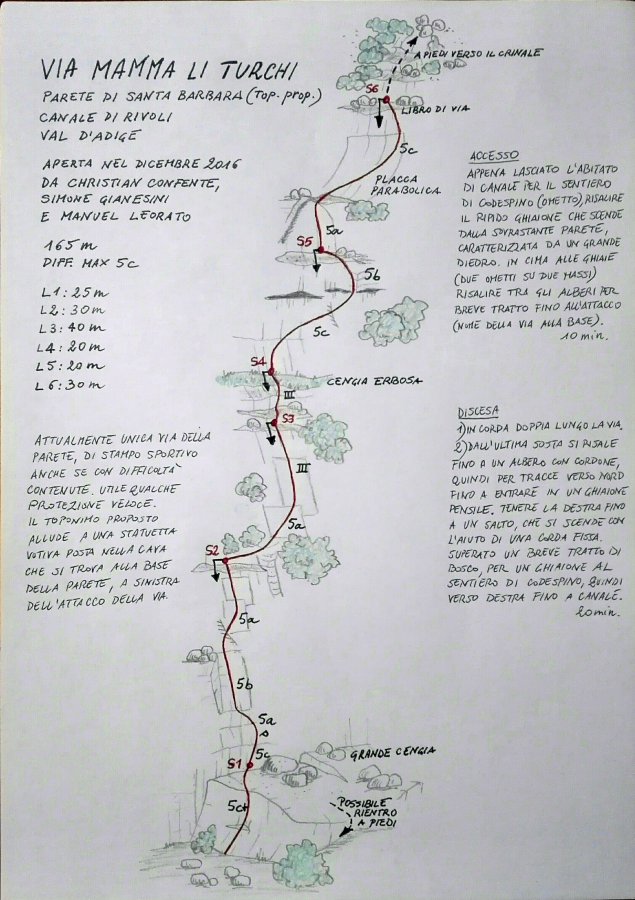 VIA MAMMA LI TURCHI
PARETE DI SANTA BARBARA (TOP. PROP.)
CANALE DI RIVOLI
VAL D'ADIGE
APERTA NEL DICEMBRE 2016
DA CHRISTIAN CONFENTE,
SIMONE GIANESINI
E MANUEL LEORATO
165 m
DIFF. MAX 5c
L1: 25 m
L2: 30 m
L3: 40 m
L4: 20 m
L5: 20 m
L6: 30 m
ATTUALMENTE UNICA VIA DELLA
PARETE, DI STAMPO SPORTIVO
ANCHE SE CON DIFFICOLTÀ
CONTENUTE. UTILE QUALCHE
PROTEZIONE VELOCE.
IL TOPONIMO PROPOSTO
ALLUDE A UNA STATUETTA
VOTIVA POSTA NELLA CAVA
CHE SI TROVA ALLA BASE
DELLA PARETE, A SINISTRA
DELL'ATTACCO DELLA VIA.
A PIEDI VERSO IL CRINALE
S6
LIBRO DI VIA
5c
PLACCA
PARABOLICA
5a
S5
5b
5c
S4
CENGIA ERBOSA
III
S3
III
5a
S2
5a
5b
5a
5c
S1
GRANDE CENGIA
5c+
POSSIBILE
RIENTRO
A PIEDI
ACCESSO
APPENA LASCIATO L'ABITATO
DI CANALE PER IL SENTIERO
DI CODESPINO (OMETTO) RISALIRE
IL RIPIDO GHIAIONE CHE SCENDE
DALLA SOVRASTANTE PARETE,
CARATTERIZZATA DA UN GRANDE
DIEDRO. IN CIMA ALLE GHIAIE
(DUE OMETTI SU DUE MASSI)
RISALIRE TRA GLI ALBERI PER
BREVE TRATTO FINO ALL'ATTACCO
(NOME DELLA VIA ALLA BASE).
10 min.
DISCESA
1) IN CORDA DOPPIA LUNGO LA VIA.
2) DALL'ULTIMA SOSTA SI RISALE
FINO A UN ALBERO CON CORDONE,
QUINDI PER TRACCE VERSO NORD
FINO A ENTRARE IN UN GHIAIONE
PENSILE. TENERE LA DESTRA FINO
A UN SALTO, CHE SI SCENDE CON
L'AIUTO DI UNA CORDA FISSA.
SUPERATO UN BREVE TRATTO DI
BOSCO, PER UN GHIAIONE AL
SENTIERO DI CODESPINO, QUINDI
VERSO DESTRA FINO A CANALE.
20 min.